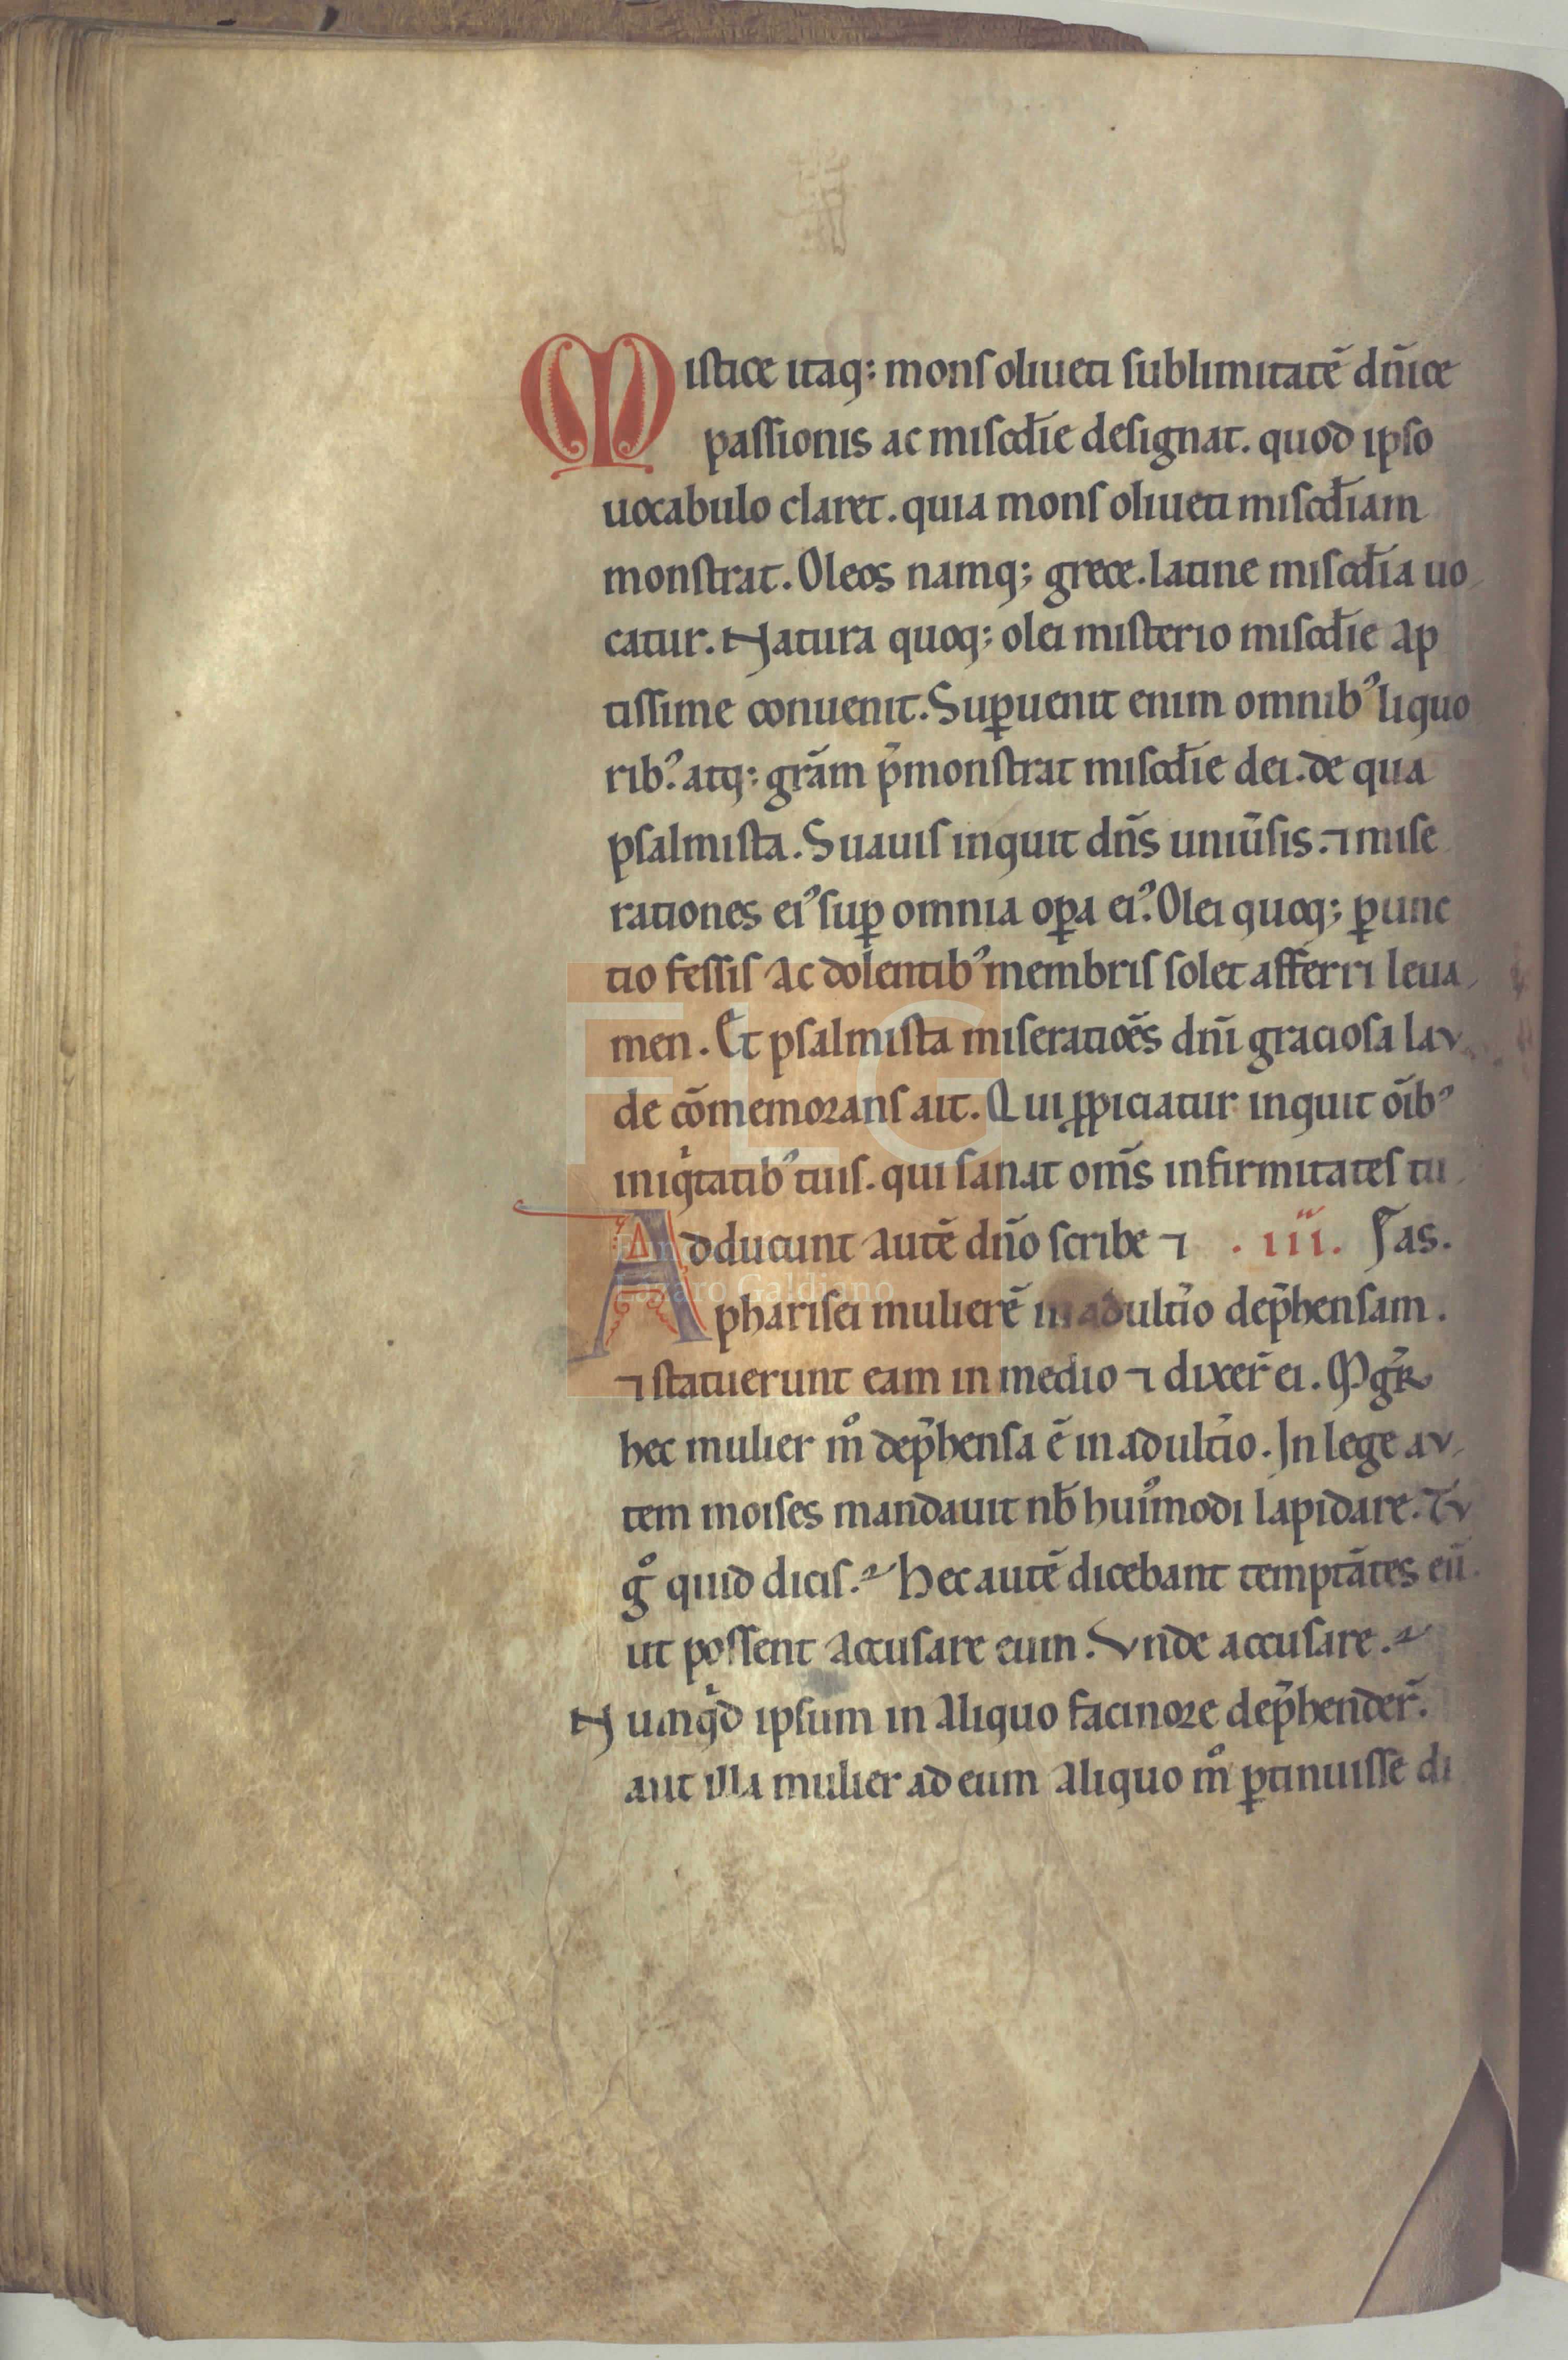 Mistice itaq; mons oliueti sublimitatē dn̄ice
passionis ac misc̄die designat. quod ipso
uocabulo claret. quia mons oliueti misc̄diam
monstrat. Oleos namq; grece. latine misc̄dia uo
catur. Natura quoq; olei misterio misc̄die ap
tissime conuenit. Suꝑuenit enim omnibꝰ liquo
ribꝰ. atq; grām p̄monstrat misc̄die dei. de qua
psalmista. Suauis inquit dn̄s uniūsis. ⁊ mise
rationes eiꝰ suꝑ omnia oꝑa eiꝰ. Olei quoq; ꝑunc
tio fessis ac dolentibꝰ membris solet afferri leua
men. Et psalmista miseratiōes dn̄i graciosa lau
de cōmemorans ait. Qui ꝓpiciatur inquit oīb'
iniqͥtatibꝰ tuis. qui sanat om̄s infirmitates tu
Adducunt autē dn̄o scribe ⁊ . iii. ſas.
pharisei mulierē in adult'io dep̄hensam.
⁊ statuerunt eam in medio ⁊ dixer̄ ei. Mgr̄
hec mulier mͦ dep̄hensa ē in adult'io. In lege au
tem moises mandauit nb̄ huiͥmodi lapidare. Tu
gͦ quid dicis. Hec autē dicebant temptātes eū
ut possent accusare eum. Vnde accusare.
Numqͥd ipsum in aliquo facinore dep̄hender̄.
aut illa mulier ad eum aliquo mͦ ꝑtinuisse di
FLG
Lázaro Galdiano